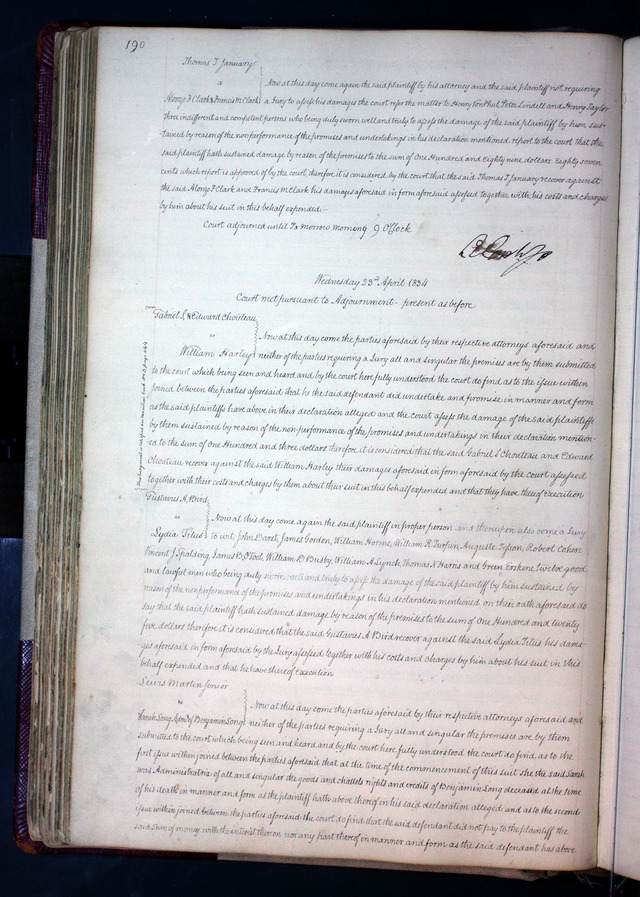 190
Thomas T January
a
Alonzo F Clark & Francis M Clark
Now at this day come again the said plaintiff by his attorney and the said plaintiff not requiring
a Jury to assess his damages the court refer the matter to Henry Von Phul, Peter Lindell and Henry Taylor
three indifferent and competent persons who being duly sworn well and truly to assess the damage of the said plaintiff by him sus-
tained by reason of the nonperformance of the promises and undertakings in his declaration mentioned report to the court that the
said plaintiff hath sustained damage by reason of the premises to the sum of One Hundred and Eighty nine dollars Eighty seven
cents which report is approved of by the court therefore it is considered by the court that the said Thomas T January recover against
the said Alonzo F Clark and Francis M Clark his damages aforesaid in form aforesaid assessed together with his costs and charges
by him about his suit in this behalf expended.-
Court adjourned until To morrow morning 9 OClock
Wednesday 23rd April 1834
Court met pursuant to Adjournment - present as before
Gabriel S & Edward Chouteau
"
William Harley
Now at this day come the parties aforesaid by their respective attorneys aforesaid and
neither of the parties requiring a Jury all and singular the premises are by them submitted
to the court which being seen and heard and by the court here fully understood the court do find as to the issue within
joined between the parties aforesaid that he the said defendant did undertake and promise in manner and form
as the said plaintiffs have above in their declaration alleged and the court assess the damage of the said plaintiffs
by them sustained by reason of the nonperformance of the promises and undertakings in their declaration mention-
ed to the sum of One Hundred and three dollars therefore it is considered that the said Gabriel S Chouteau and Edward
Chouteau recover against the said William Harley their damages aforesaid in form aforesaid by the court assessed
together with their costs and charges by them about their suit in this behalf expended and that they have thereof Execution
Gustavus A Bird
"
Lydia Titus
Now at this day come again the said plaintiff in proper person and thereupon also come a Jury
to wit, John Darst, James Gordon, William Horine, William R Turpin Auguste Tesson, Robert Cohen
Vincent J Spalding, James B OTool, William B Busby, William A Lynch Thomas N Harris and Green Erskine twelve good
and lawful men who being duly sworn well and truly to assess the damage of the said plaintiff by him sustained by
reason of the nonperformance of the promises and undertakings in his declaration mentioned on their oath aforesaid do
say that the said plaintiff hath sustained damage by reason of the premises to the sum of One Hundred and twenty
five dollars therefore it is considered that the said Gustavus A Bird recover against the said Lydia Titus his dama-
ges aforesaid in form aforesaid by the Jury assessed together with his costs and charges by him about his suit in this
behalf expended and that he have thereof execution
Martin Senior
"
Sarah Song Admx of Benjamin Song
Now at this day come the parties aforesaid by their respective attorneys aforesaid and
neither of the parties requiring a Jury all and singular the premises are by them
submitted to the court which being seen and heard and by the court here fully understood the court do find, as to the
first issue within joined between the parties aforesaid that at the time of the commencement of this suit she the said Sarah
was Administratrix of all and singular the goods and chattels rights and credits of Benjamin Song deceased at the time
of his death in manner and form as the plaintiff hath above thereof in his said declaration alleged and as to the second
issue within joined between the parties aforesaid the court do find that the said defendant did not pay to the plaintiff the
said sum of money with the interest thereon nor any part thereof in manner and form as the said defendant has above